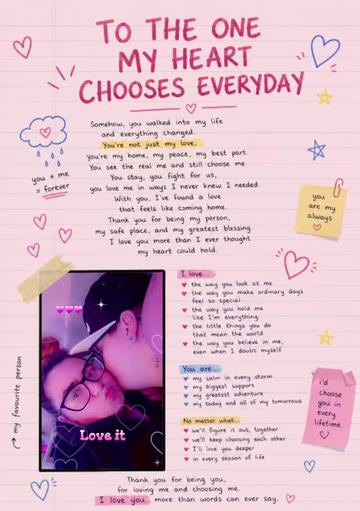 TO THE ONE
MY HEART
CHOOSES EVERYDAY
Somehow, you walked into my life
and everything changed.
You're not just my love,
you're my home, my peace, my best part.
You see the real me and still choose me.
You stay, you fight for us,
you love me in ways I never knew I needed.
With you, I've found a love
that feels like coming home.
Thank you for being my person,
my safe place, and my greatest blessing.
I love you more than I ever thought
my heart could hold.
you + me
= forever
you
are my
always
I love...
the way you look at me
the way you make ordinary days
feel so special
the way you hold me
like I'm everything
the little things you do
that mean the world
the way you believe in me,
even when I doubt myself
You are...
my calm in every storm
my biggest support
my greatest adventure
my today and all of my tomorrows
No matter what...
we'll figure it out, together
we'll keep choosing each other
I'll love you deeper
in every season of life
i'd
choose
you in
every
lifetime.
my favourite person
Love it
Thank you for being you,
for loving me and choosing me.
I love you more than words can ever say.